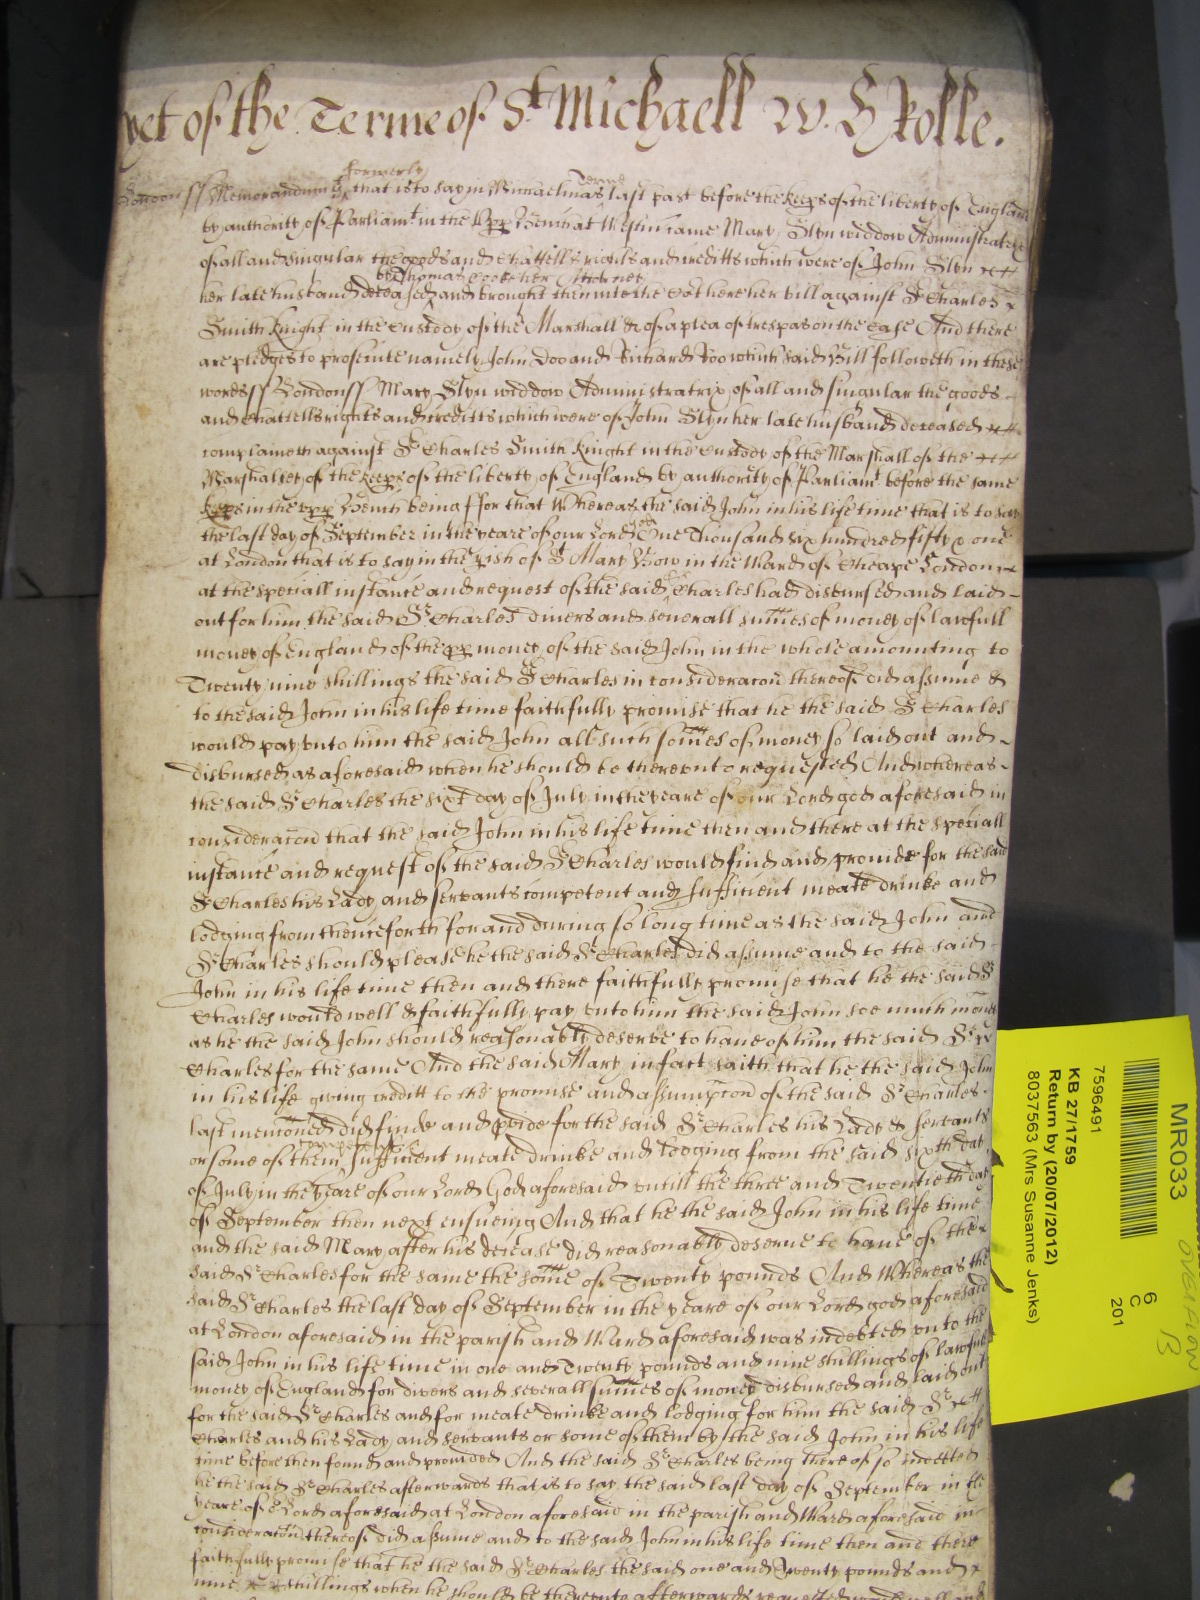 yet of the Terme of St Michaell W. H Rolle.
formerly Terme
London ss Memorandum that is to say in Michaelmas last past before the keeps of the liberty of England
by authority of Parliamt in the upp Bench at Westm came Mary Slyn widdow Administratrix
of all and singular the goods and chattells rights and creditts which were of John Slyn
by Thomas Cooke her Attorney
her late husband deceased and brought then into the Cot here her bill against Sr Charles
Smith knight in the Custody of the Marshall &c of a plea of trespas on the Case And there
are pledges to prosecute namely John Doo and Richard Roo which said Bill followeth in these
words ss London ss Mary Slyn widdow Administratrix of all and singular the goods
and chattells rights and creditts which were of John Slyn her late husband deceased
complaineth against Sr Charles Smith knight in the Custody of the Marshall of the
Marshalsey of the keeps of the liberty of England by authority of Parliamt before the same
keeps in the upp Bench being ffor that Whereas the said John in his life time that is to say
the last day of September in the yeare of our Lord god One Thousand six hundred fifty & one
at London that is to say in the pish of St Mary Bow in the Ward of Cheape London
at the speciall instance and request of the said Sr Charles had disbursed and laid
out for him the said Sr Charles divers and severall summes of money of lawfull
money of England of the pp money of the said John in the whole amounting to
Twenty nine shillings the said Sr Charles in consideracon thereof did assume &
to the said John in his life time faithfully promise that he the said Sr Charles
would pay unto him the said John all such sommes of money so laid out and
disbursed as aforesaid when he should be thereunto requested And whereas
the said Sr Charles the sixt day of July in the yeare of our Lord god aforesaid in
consideracon that the said John in his life time then and there at the speciall
instance and request of the said Sr Charles would find and provide for the said
Sr Charles his Lady and servants competent and sufficient meate drinke and
lodging from thenceforth for and during so long time as the said John and
Sr Charles should please he the said Sr Charles did assume and to the said
John in his life time then and there faithfully promise that he the said Sr
Charles would well & faithfully pay unto him the said John soe much money
as he the said John should reasonably deserve to have of him the said Sr
Charles for the same And the said Mary in fact saith that he the said John
in his life giving creditt to the promise and assumpcon of the said Sr Charles
last menconed did finde and pvide for the said Sr Charles his Lady & servants
competent &
or some of them sufficient meate drinke and lodging from the said sixth day
of July in the yeare of our Lord God aforesaid untill the three and Twentieth day
of September then next ensueing And that he the said John in his life time
and the said Mary after his decease did reasonably deserve to have of the
said Sr Charles for the same the somme of Twenty pounds And Whereas the
said Sr Charles the last day of September in the yeare of our Lord god aforesaid
at London aforesaid in the parish and Ward aforesaid was indebted unto the
said John in his life time in one and Twenty pounds and nine shillings of lawfull
money of England for divers and severall summes of money disbursed and laid out
for the said Sr Charles and for meate drinke and lodging for him the said Sr
Charles and his Lady and servants or some of them by the said John in his life
time before then found and provided And the said Sr Charles being thereof so indebted
he the said Sr Charles afterwards that is to say the said last day of September in the
yeare of or Lord aforesaid at London aforesaid in the parish and Ward aforesaid in
consideracon thereof did assume and to the said John in his life time then and there
faithfully promise that he the said Sr Charles the said one and Twenty pounds and
nine shillings when he should be thereunto afterwards requested would well and
MR033
7596491
KB 27/1759
Return by (20/07/2012)
8037563 (Mrs Susanne Jenks)
6
C
201
overflow
13